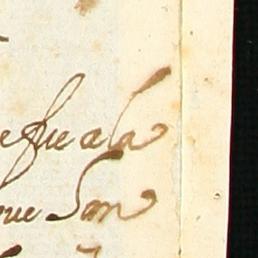 e fue a la
que Son